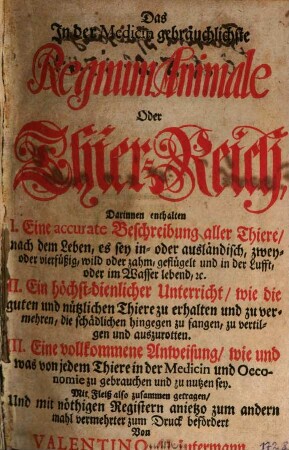 Das
In der Medicin gebräuchlichste
Regnum Animale
Oder
Thier-Reich,
Darinnen enthalten
I. Eine accurate Beschreibung aller Thiere/
nach dem Leben, es sey in- oder ausländisch, zwey-
oder vierfüßig, wild oder zahm, geflügelt und in der Lufft,
oder im Wasser lebend, ꝛc.
II. Ein höchst-dienlicher Unterricht/ wie die
guten und nützlichen Thiere zu erhalten und zu ver-
mehren, die schädlichen hingegen zu fangen, zu vertil-
gen und auszurotten.
III. Eine vollkommene Anweisung/ wie und
was von jedem Thiere in der Medicin und Oeco-
nomie zu gebrauchen und zu nutzen sey.
Mit Fleiß also zusammen getragen/
Und mit nöthigen Registern anietzo zum andern
mahl vermehrter zum Druck befördert
Von
VALENTINO